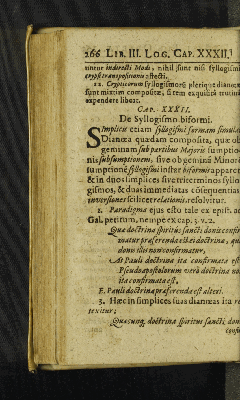 266 LIB. III. LOG. CAP. XXXII.
tinetur indirecti Modi, nihil sunt nisi syllogismi
cryptico transpositionis affecti.
12. Crypticorum syllogismorū plerique dianœæ
sunt mixtim compositæ, si rem exquisita trutina
expendere libeat.
CAP. XXXII.
De Syllogismo biformi.
Simplicis etiam syllogismi formam simulat
Dianœa quædam composita, quæ ob
geminam sub partibus Majoris sumptio-
nis subsumptionem, sive ob geminā Minorē
sumptionē syllogismi instar biformis apparet
& in duos simplices sive tricerminos syllo-
gismos, & duas immediatus cōsequentias
inversiones scilicet relationis, resolvitur.
2. Paradigma ejus esto tale ex epist. ad
Gal. petitum, nempe ex cap. 3. v. 2.
Qua doctrina spiritus sancti donis confir-
matur præferenda est ei doctrinæ, quæ
dono illius non confirmatur,
At Pauli doctrina ita confirmata est
Pseudoapostolorum verò doctrina non
ita confirmata est,
E. Pauli doctrina præferenda est alteri.
3. Hæc in simplices suas dianœas ita re-
texitur;
Quæcunq; doctrina spiritus sancti, donis